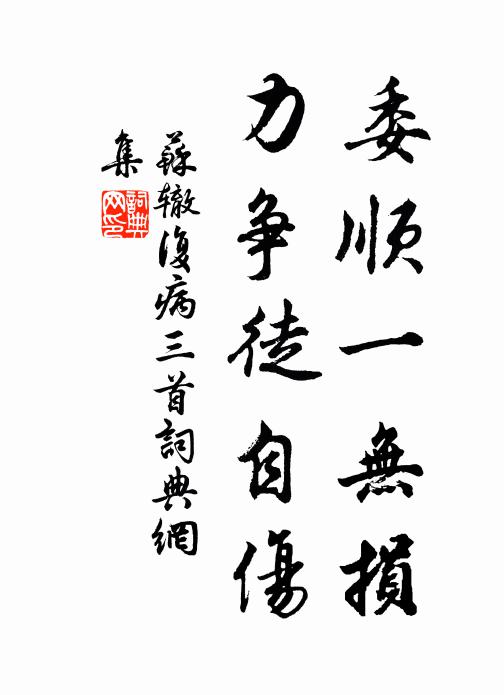 委順一無損
力争徒自傷
蘇辙復病三首詞典網
集
詞典
网印